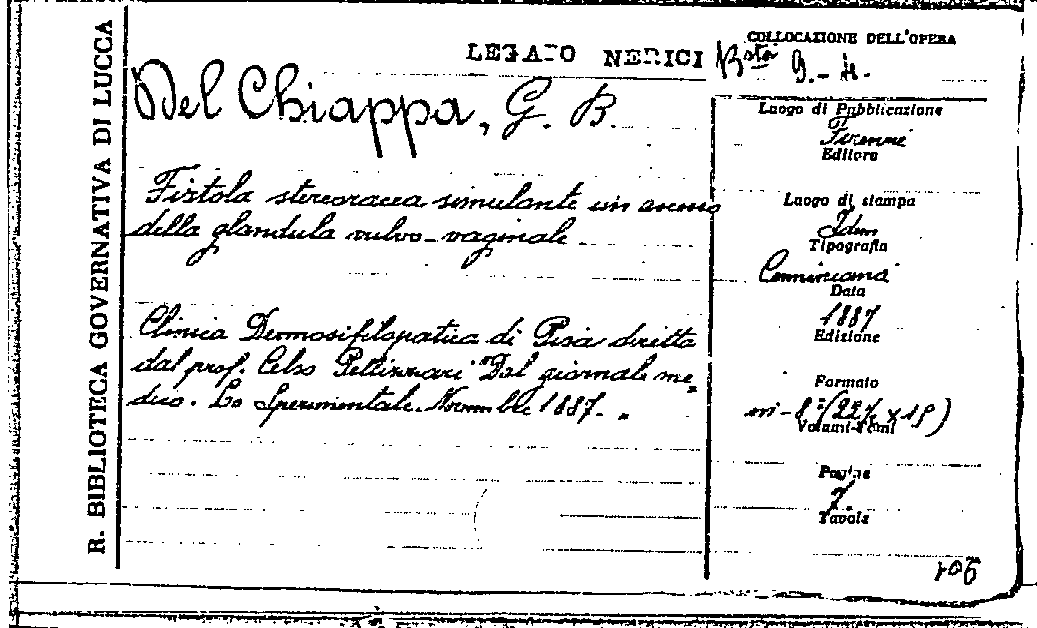 R. BIBLIOTECA GOVERNATIVA DI LUCCA
LEGATO NERICI
COLLOCAZIONE DELL'OPERA
Bsta 9.-4.
Del Chiappa, G. B.
Fistola stercoracea simulante un
della glandula vulvo-vaginale
Clinica Dermosifilopatica di Pisa diretta
dal prof. Celso Pellizzari "Dal giornale me-
dico. Lo Sperimentale. Novembre 1887. "
Luogo di Pubblicazione
Firenze
Editore
Luogo di stampa
Idem
Tipografia
Cenniniana
Data
1887
Edizione
Formato
in-8° (22½ x 15)
Volumi-Tomi
Pagine
7.
Tavole